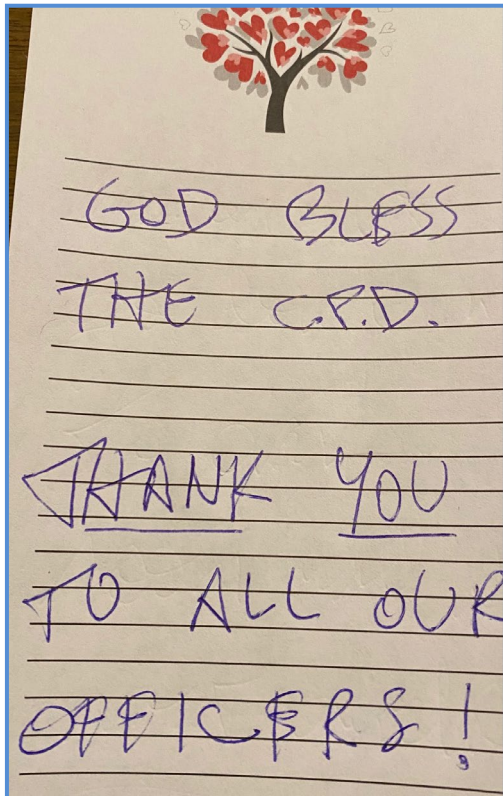 GOD BLESS
THE C.P.D.
THANK YOU
TO ALL OUR
OFFICERS!